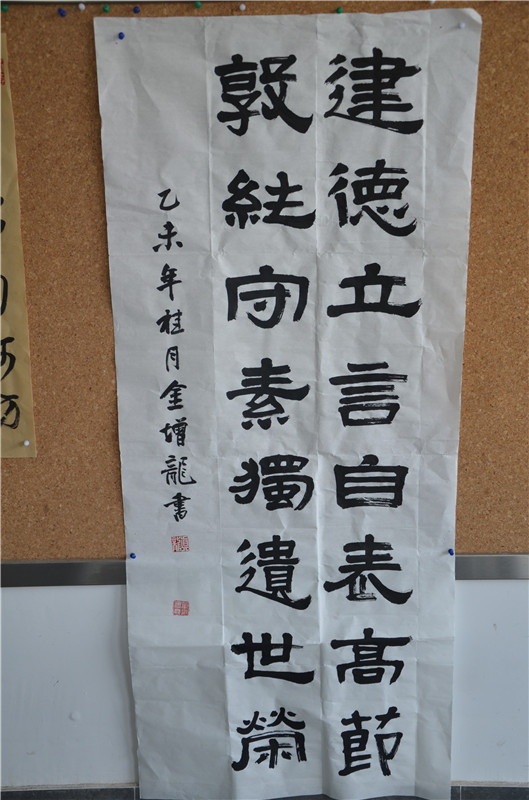 建德立言自表高節
敦純守素獨遺世榮
乙未年桂月金增龍書